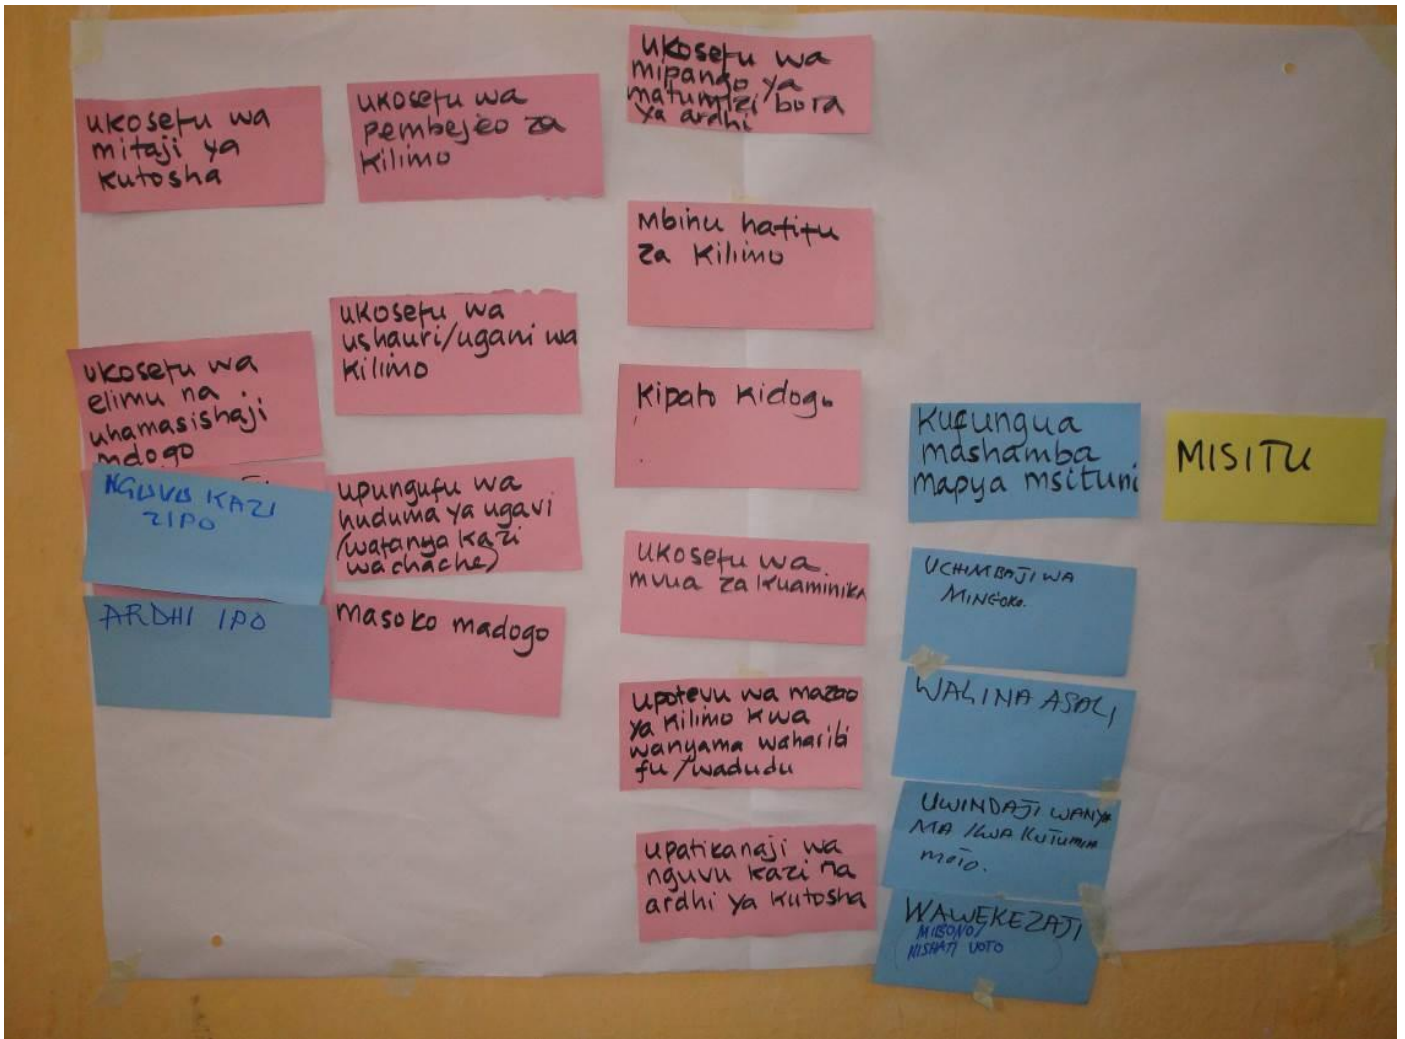 ukosefu wa
mitaji ya
kutosha
ukosefu wa
elimu na
uhamasishaji
mdogo
NGUVU KAZI
ZIPO
ARDHI IPO
ukosefu wa
pembejeo za
kilimo
ukosefu wa
ushauri/ugani wa
kilimo
upungufu wa
huduma ya ugavi
(wafanya kazi
wachache)
masoko madogo
ukosefu wa
mipango ya
matumizi bora
ya ardhi
Mbinu hafifu
za kilimo
kipato kidogo
ukosefu wa
mvua za kuaminika
upotevu wa mazao
ya kilimo kwa
wanyama waharibi
fu/wadudu
upatikanaji wa
nguvu kazi na
ardhi ya kutosha
kufungua
mashamba
mapya msituni
UCHIMBAJI WA
MINGOKO.
WALINA ASALI
UWINDAJI WANYA
MA KWA KUTUMIA
MOTO.
WAWEKEZAJI
MIBONO/
NISHATI UOTO
MISITU